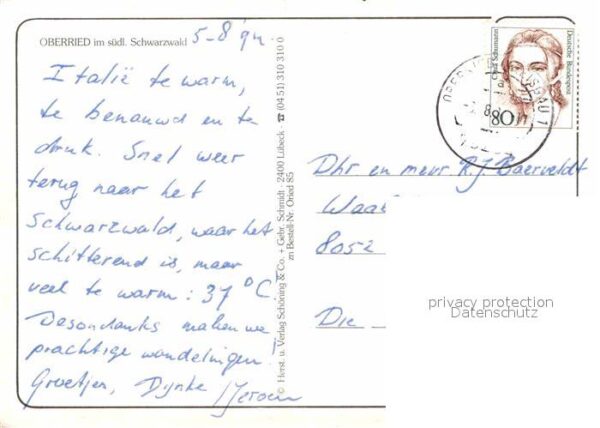 OBERRIED im südl. Schwarzwald 5-8 '94
Italië te warm,
te benauwd en te
druk. Snel weer
terug naar het
Schwarzwald, waar het
schitterend is, maar
veel te warm: 37°C!
Desondanks maken we
prachtige wandelingen!
Groetjes, Dynke / Jeroen
© Herst. u. Verlag Schöning & Co. + Gebr. Schmidt · 2400 Lübeck ☎ (04 51) 310 310 0
zu Bestell-Nr. Oried S5
Clara Schumann
Deutsche Bundespost
80
Dhr en mevr R.J. Baerveldt
8052
Die
privacy protection
Datenschutz